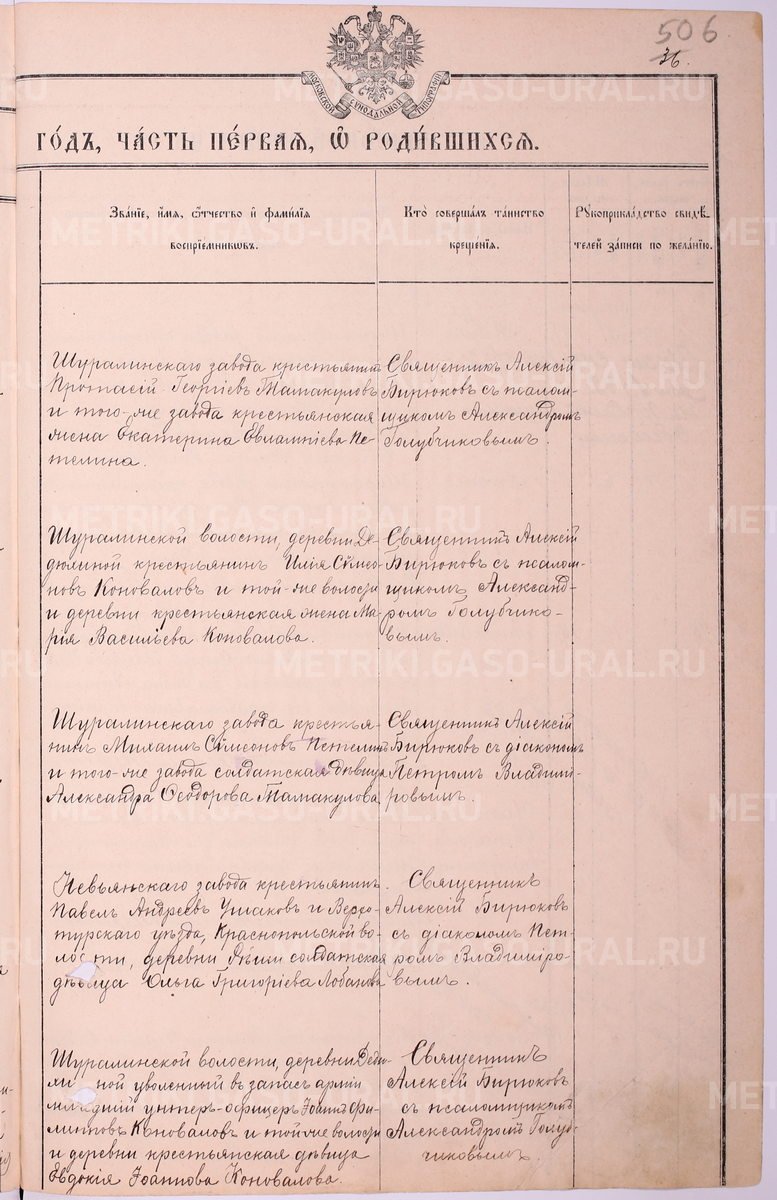 506
36.
МОСКОВСКОЙ СѴНОДАЛЬНОЙ ТИПОГРАФІИ
ГО́ДЪ, ЧА́СТЬ ПЕ́РВАЯ, Ѽ РОДИ́ВШИХСЯ.
Зва́нїе, и҆́мя, ѻ҆́тчество и҆ фами́лїя
воспрїе́мниковъ.
Кто̀ соверша́лъ та́инство
креще́нїя.
Рꙋкоприкла́дство свидѣ́-
телей за́писи по жела́нїю.
Шуралинскаго завода крестьянинъ
Протасій Георгіевъ Татакуловъ
и того-же завода крестьянская
жена Екатерина Евлампіева Пе-
телина.
Священникъ Алексій
Бирюковъ съ псалом-
щикомъ Александромъ
Голубчиковымъ.
Шуралинской волости, деревни Де-
дюлиной крестьянинъ Илія Сѵмео-
новъ Коноваловъ и той-же волости
и деревни крестьянская жена Ма-
рія Васильева Коновалова.
Священникъ Алексій
Бирюковъ съ псалом-
щикомъ Александ-
ромъ Голубчико-
вымъ.
Шуралинскаго завода крестья-
нинъ Михаилъ Сѵмеоновъ Петелинъ
и того-же завода солдатская дѣвица
Александра Ѳеодорова Татакулова.
Священникъ Алексій
Бирюковъ съ діакономъ
Петромъ Владимі-
ровымъ.
Невьянскаго завода крестьянинъ
Павелъ Андреевъ Ушаковъ и Верхо-
турскаго уѣзда, Краснопольской во-
лости, деревни солдатская
дѣвица Ольга Григоріева Лобанова
Священникъ
Алексій Бирюковъ
съ діакономъ Пет-
ромъ Владиміро-
вымъ.
Шуралинской волости, деревни Дедю-
линой уволенный въ запасъ арміи
младшій унтеръ-офицеръ Іоаннъ Фи-
липповъ Коноваловъ и той-же волости
и деревни крестьянская дѣвица
Евдокія Іоаннова Коновалова.
Священникъ
Алексій Бирюковъ
съ псаломщикомъ
Александромъ Голуб-
чиковымъ.
METRIKI.GASO-URAL.RU